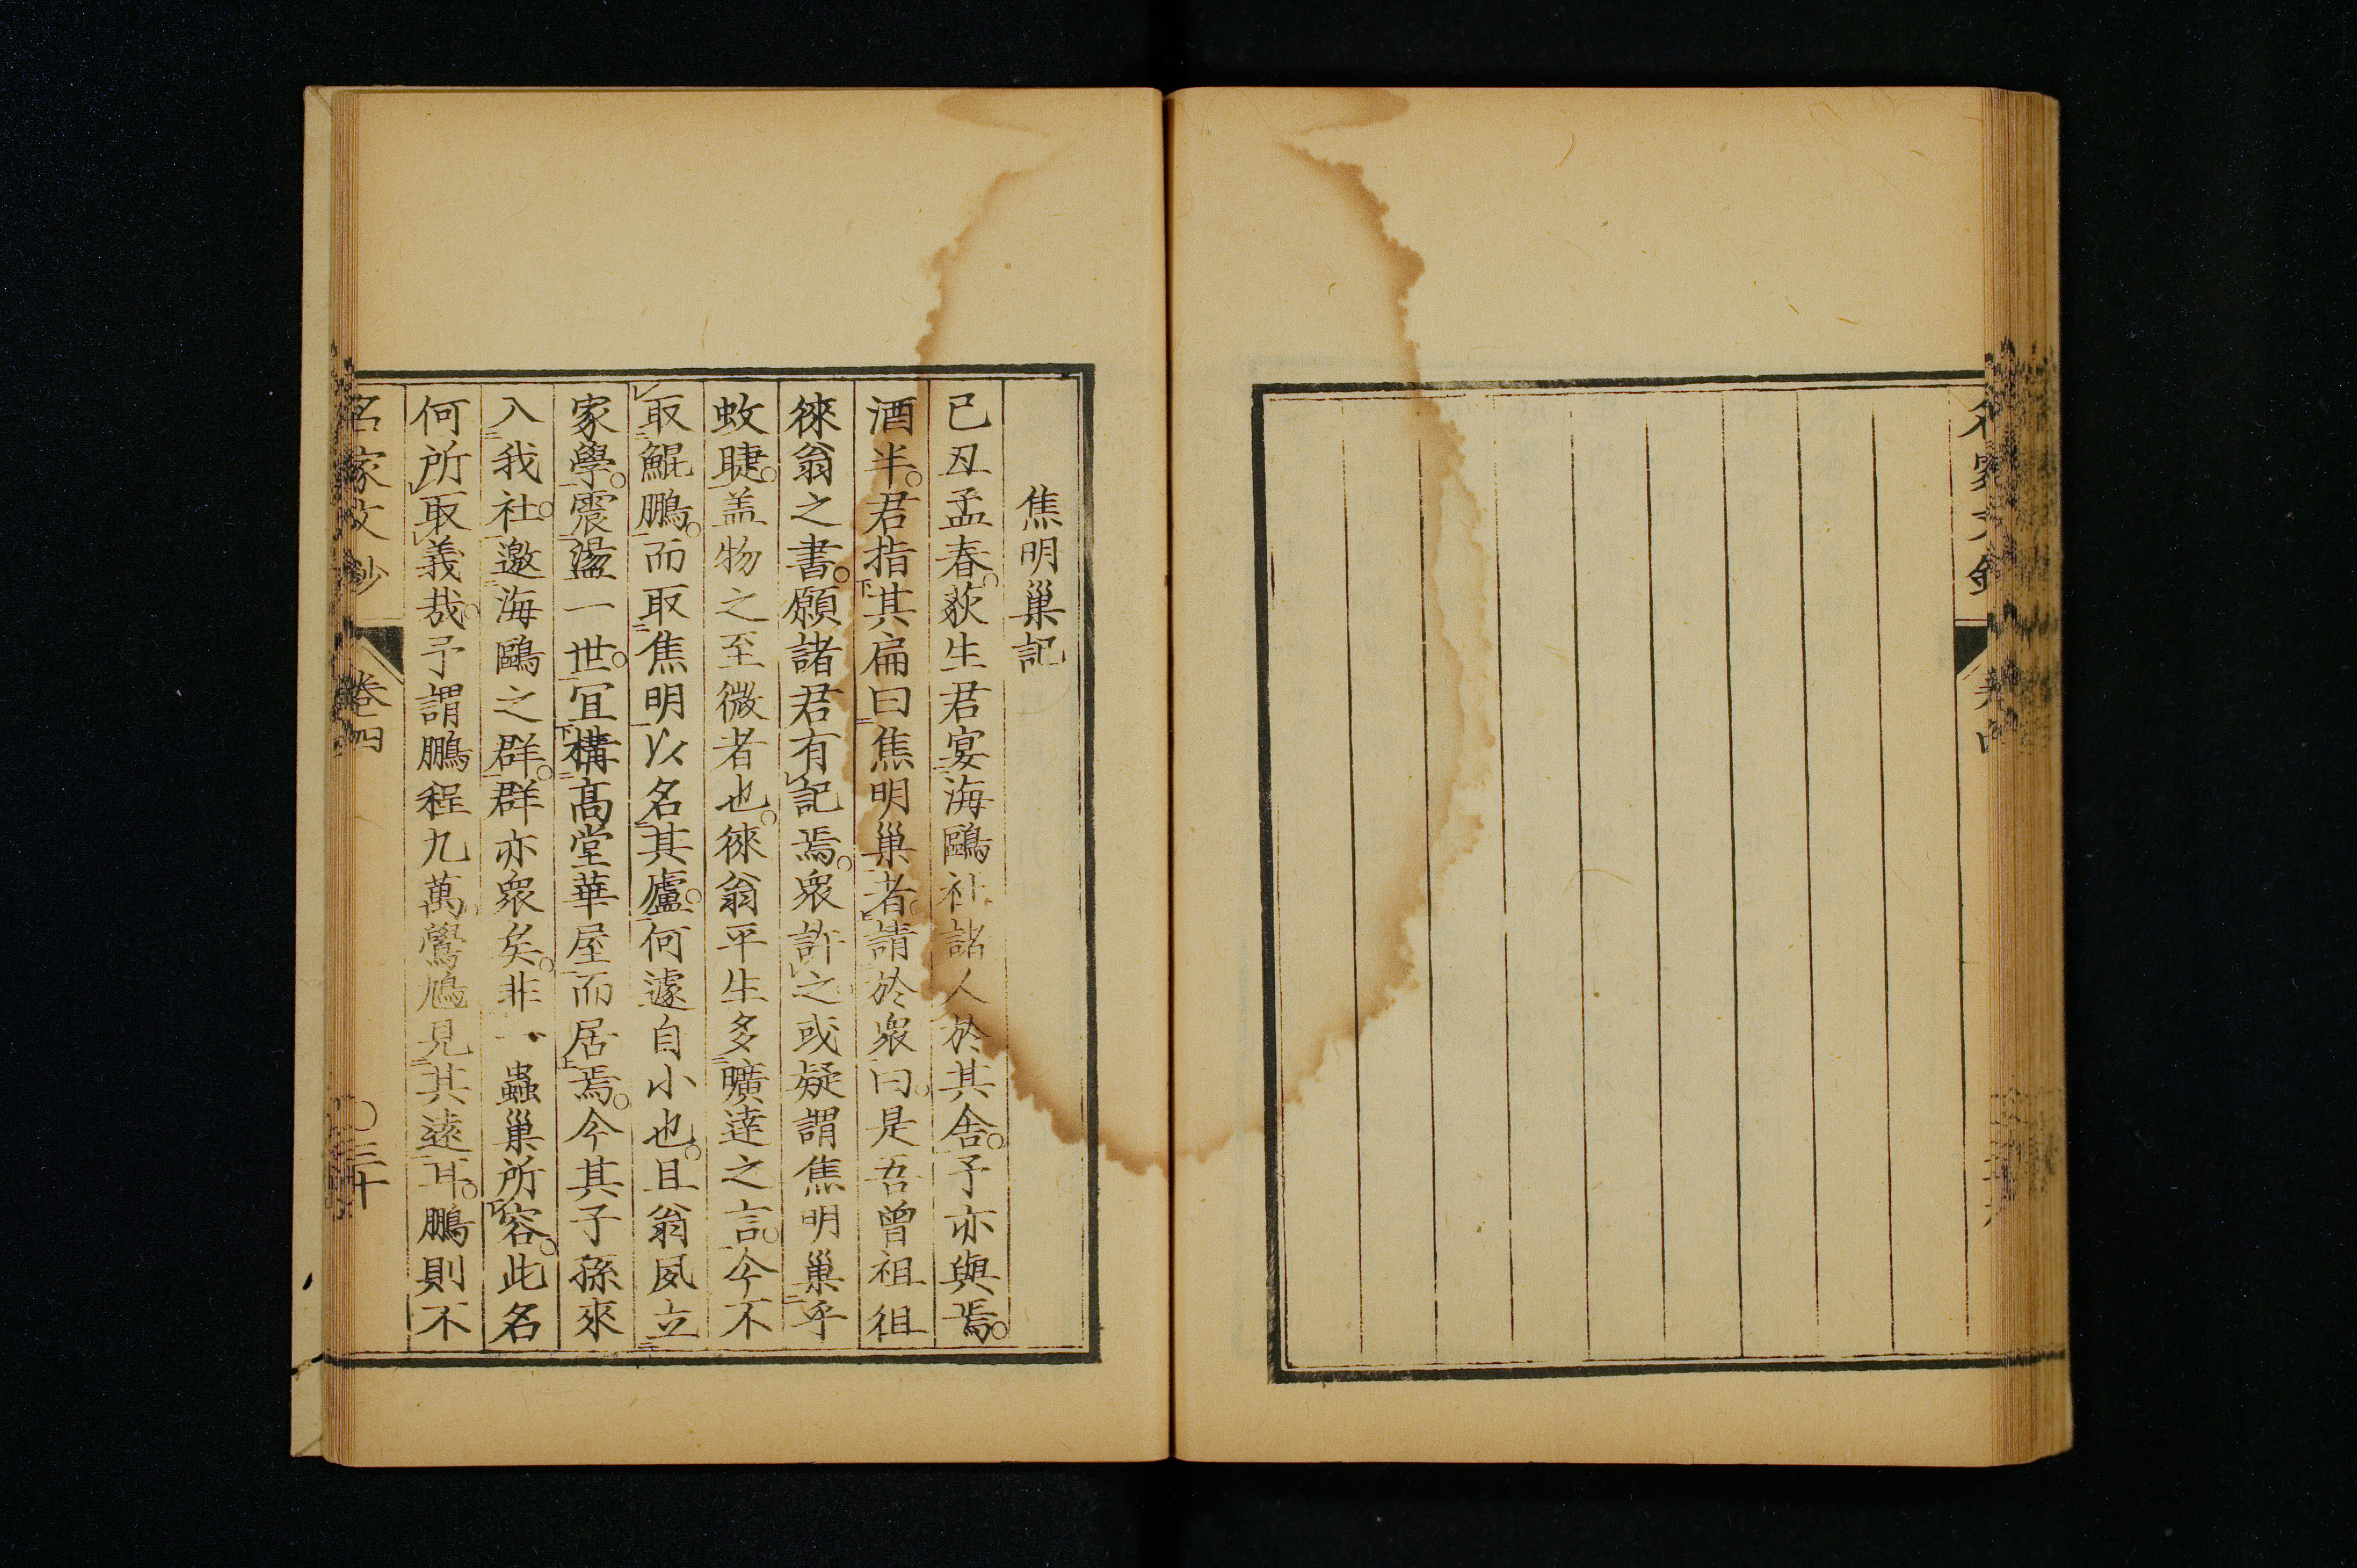 名家文鈔
卷四
焦明巢記
己丑孟春。荻生君宴海鷗社諸人於其舍。予亦與焉。
酒半。君指其扁曰焦明巢者請於衆曰。是吾曾祖徂
徠翁之書。願諸君有記焉。衆許之或疑謂焦明巢乎
蚊睫。盖物之至微者也。徠翁平生多曠達之言。今不
取鯤鵬。而取焦明以名其廬。何遽自小也。且翁夙立
家學。震盪一世。宜構高堂華屋而居焉。今其子孫來
入我社。邀海鷗之群。群亦衆矣。非一蟲巢所容。此名
何所取義哉。予謂鵬程九萬。鷽鳩見其遠耳。鵬則不
名家文鈔
卷四
〇三十